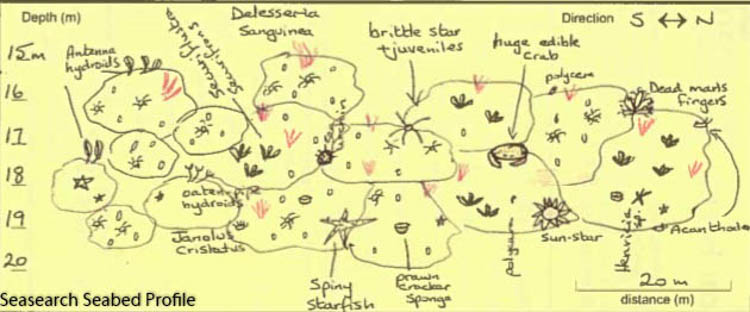 Depth (m)
Direction S ↔ N
15m
16
17
18
19
20
Antenna
hydroids
Securiflustra
Securifrons
Delesseria
Sanguinea
brittle star
+juveniles
huge edible
crab
polycera
Dead mans
fingers
oaten pipe
hydroids
Janolus
Cristatus
Spiny
starfish
prawn
cracker
sponge
polycera
Sun-star
Henricia
sp.
Acanthodo
20 m
distance (m)
Seasearch Seabed Profile